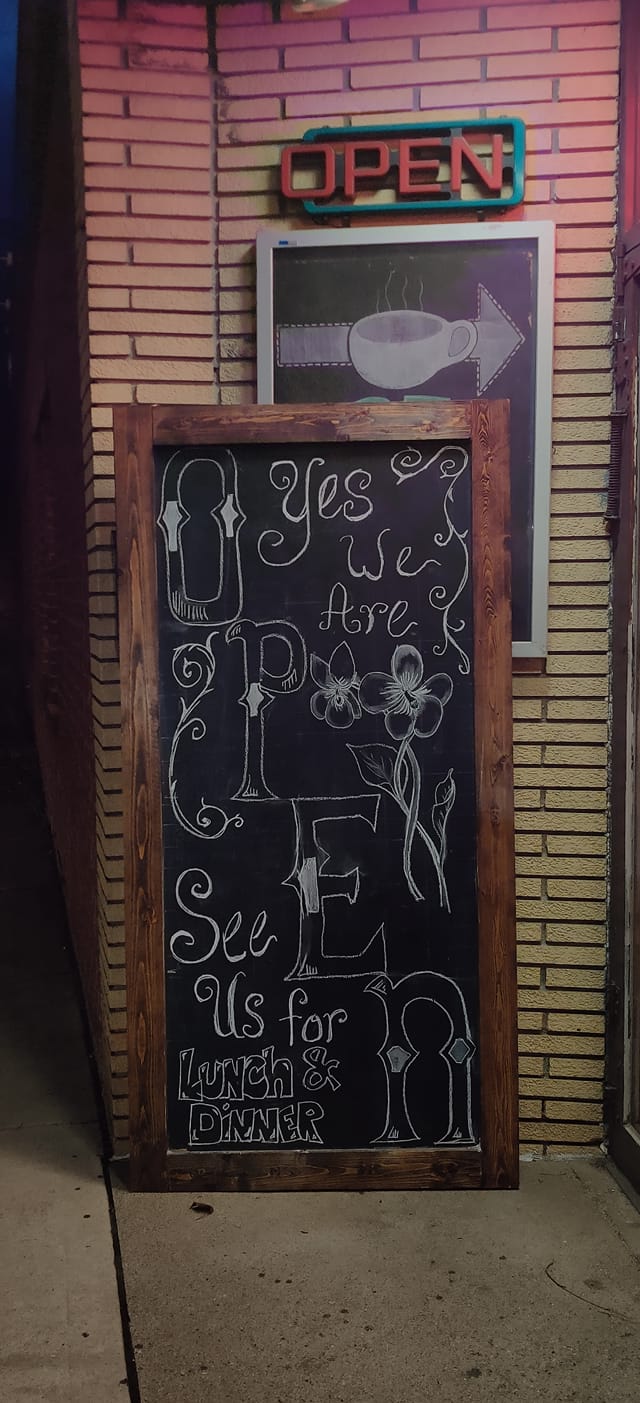 OPEN
Yes
We
Are
OPEn
See
Us for
LUNCH &
DINNER